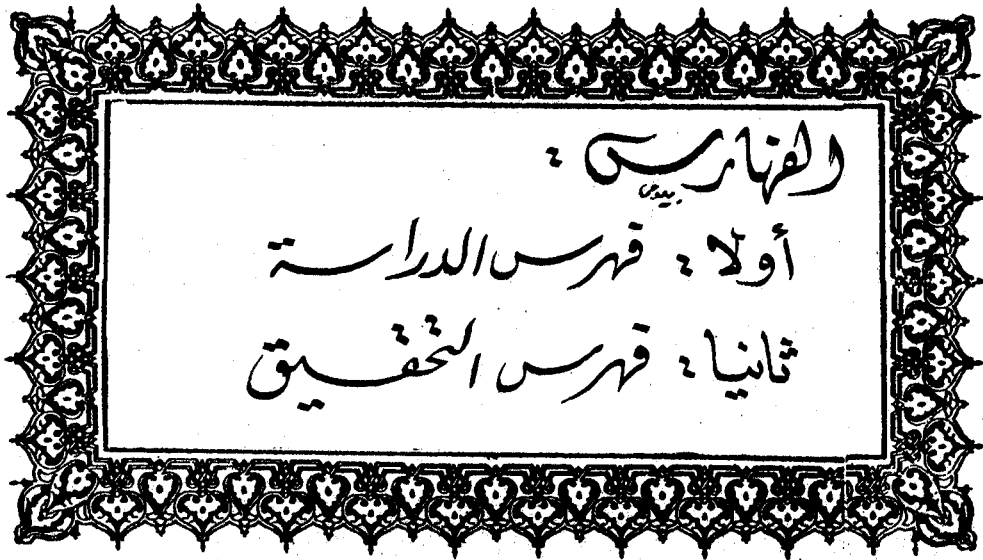 الفهارس :
أولا : فهرس الدراسة
ثانيا : فهرس التحقيق